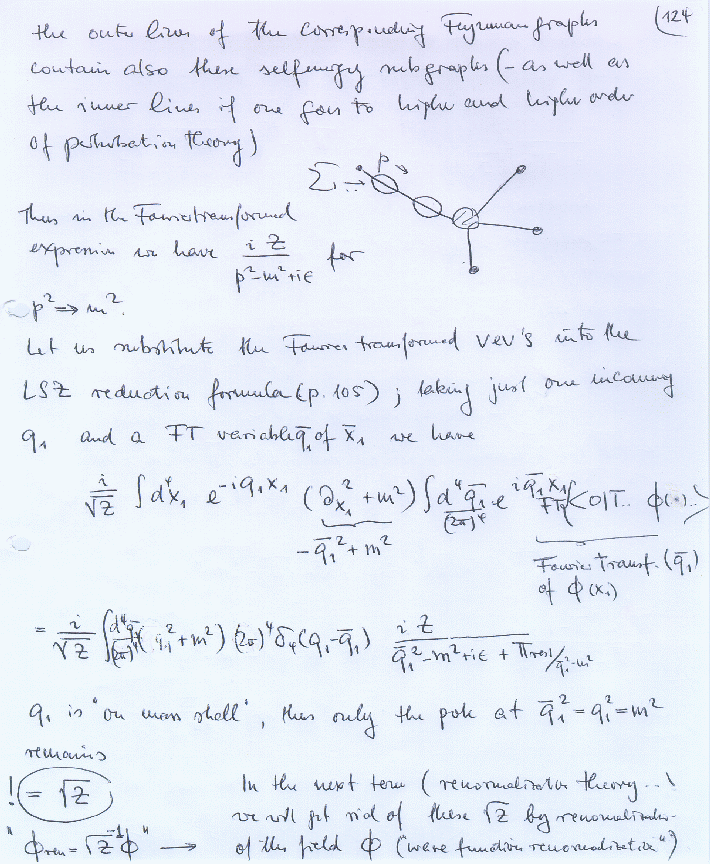 (124
the outer lines of the corresponding Feynman graphs
contain also these selfenergy subgraphs (– as well as
the inner lines if one goes to higher and higher order
of perturbation theory)
Σ → p →
Thus in the Fouriertransformed
expression we have iZ / (p²-m²+iε) for
p² → m².
Let us substitute the Fourier transformed vev's into the
LSZ reduction formula (p. 105) ; taking just one incoming
q₁ and a FT variable q̄₁ of x̄₁ we have
i/√Z ∫d⁴x₁ e^{-iq₁x₁} (∂²_{x₁} + m²) ∫ d⁴q̄₁/(2π)⁴ · e^{iq̄₁x₁} FT <0|T.. ϕ(·)..>
-q̄₁² + m²
Fourier Transf. (q̄₁)
of ϕ(x₁)
= i/√Z ∫ d⁴q̄₁/(2π)⁴ ( q̄₁² + m²) (2π)⁴ δ₄(q₁-q̄₁) iZ / (q̄₁²-m²+iε + Π_{rest}/q̄₁²-m²)
q₁ is "on mass shell", thus only the pole at q̄₁² = q₁² = m²
remains
! = √Z In the next term (renormalization theory...)
we will get rid of these √Z by renormalization
" ϕ_{ren} = √Z⁻¹ ϕ " → of the field ϕ ("wave function renormalization")